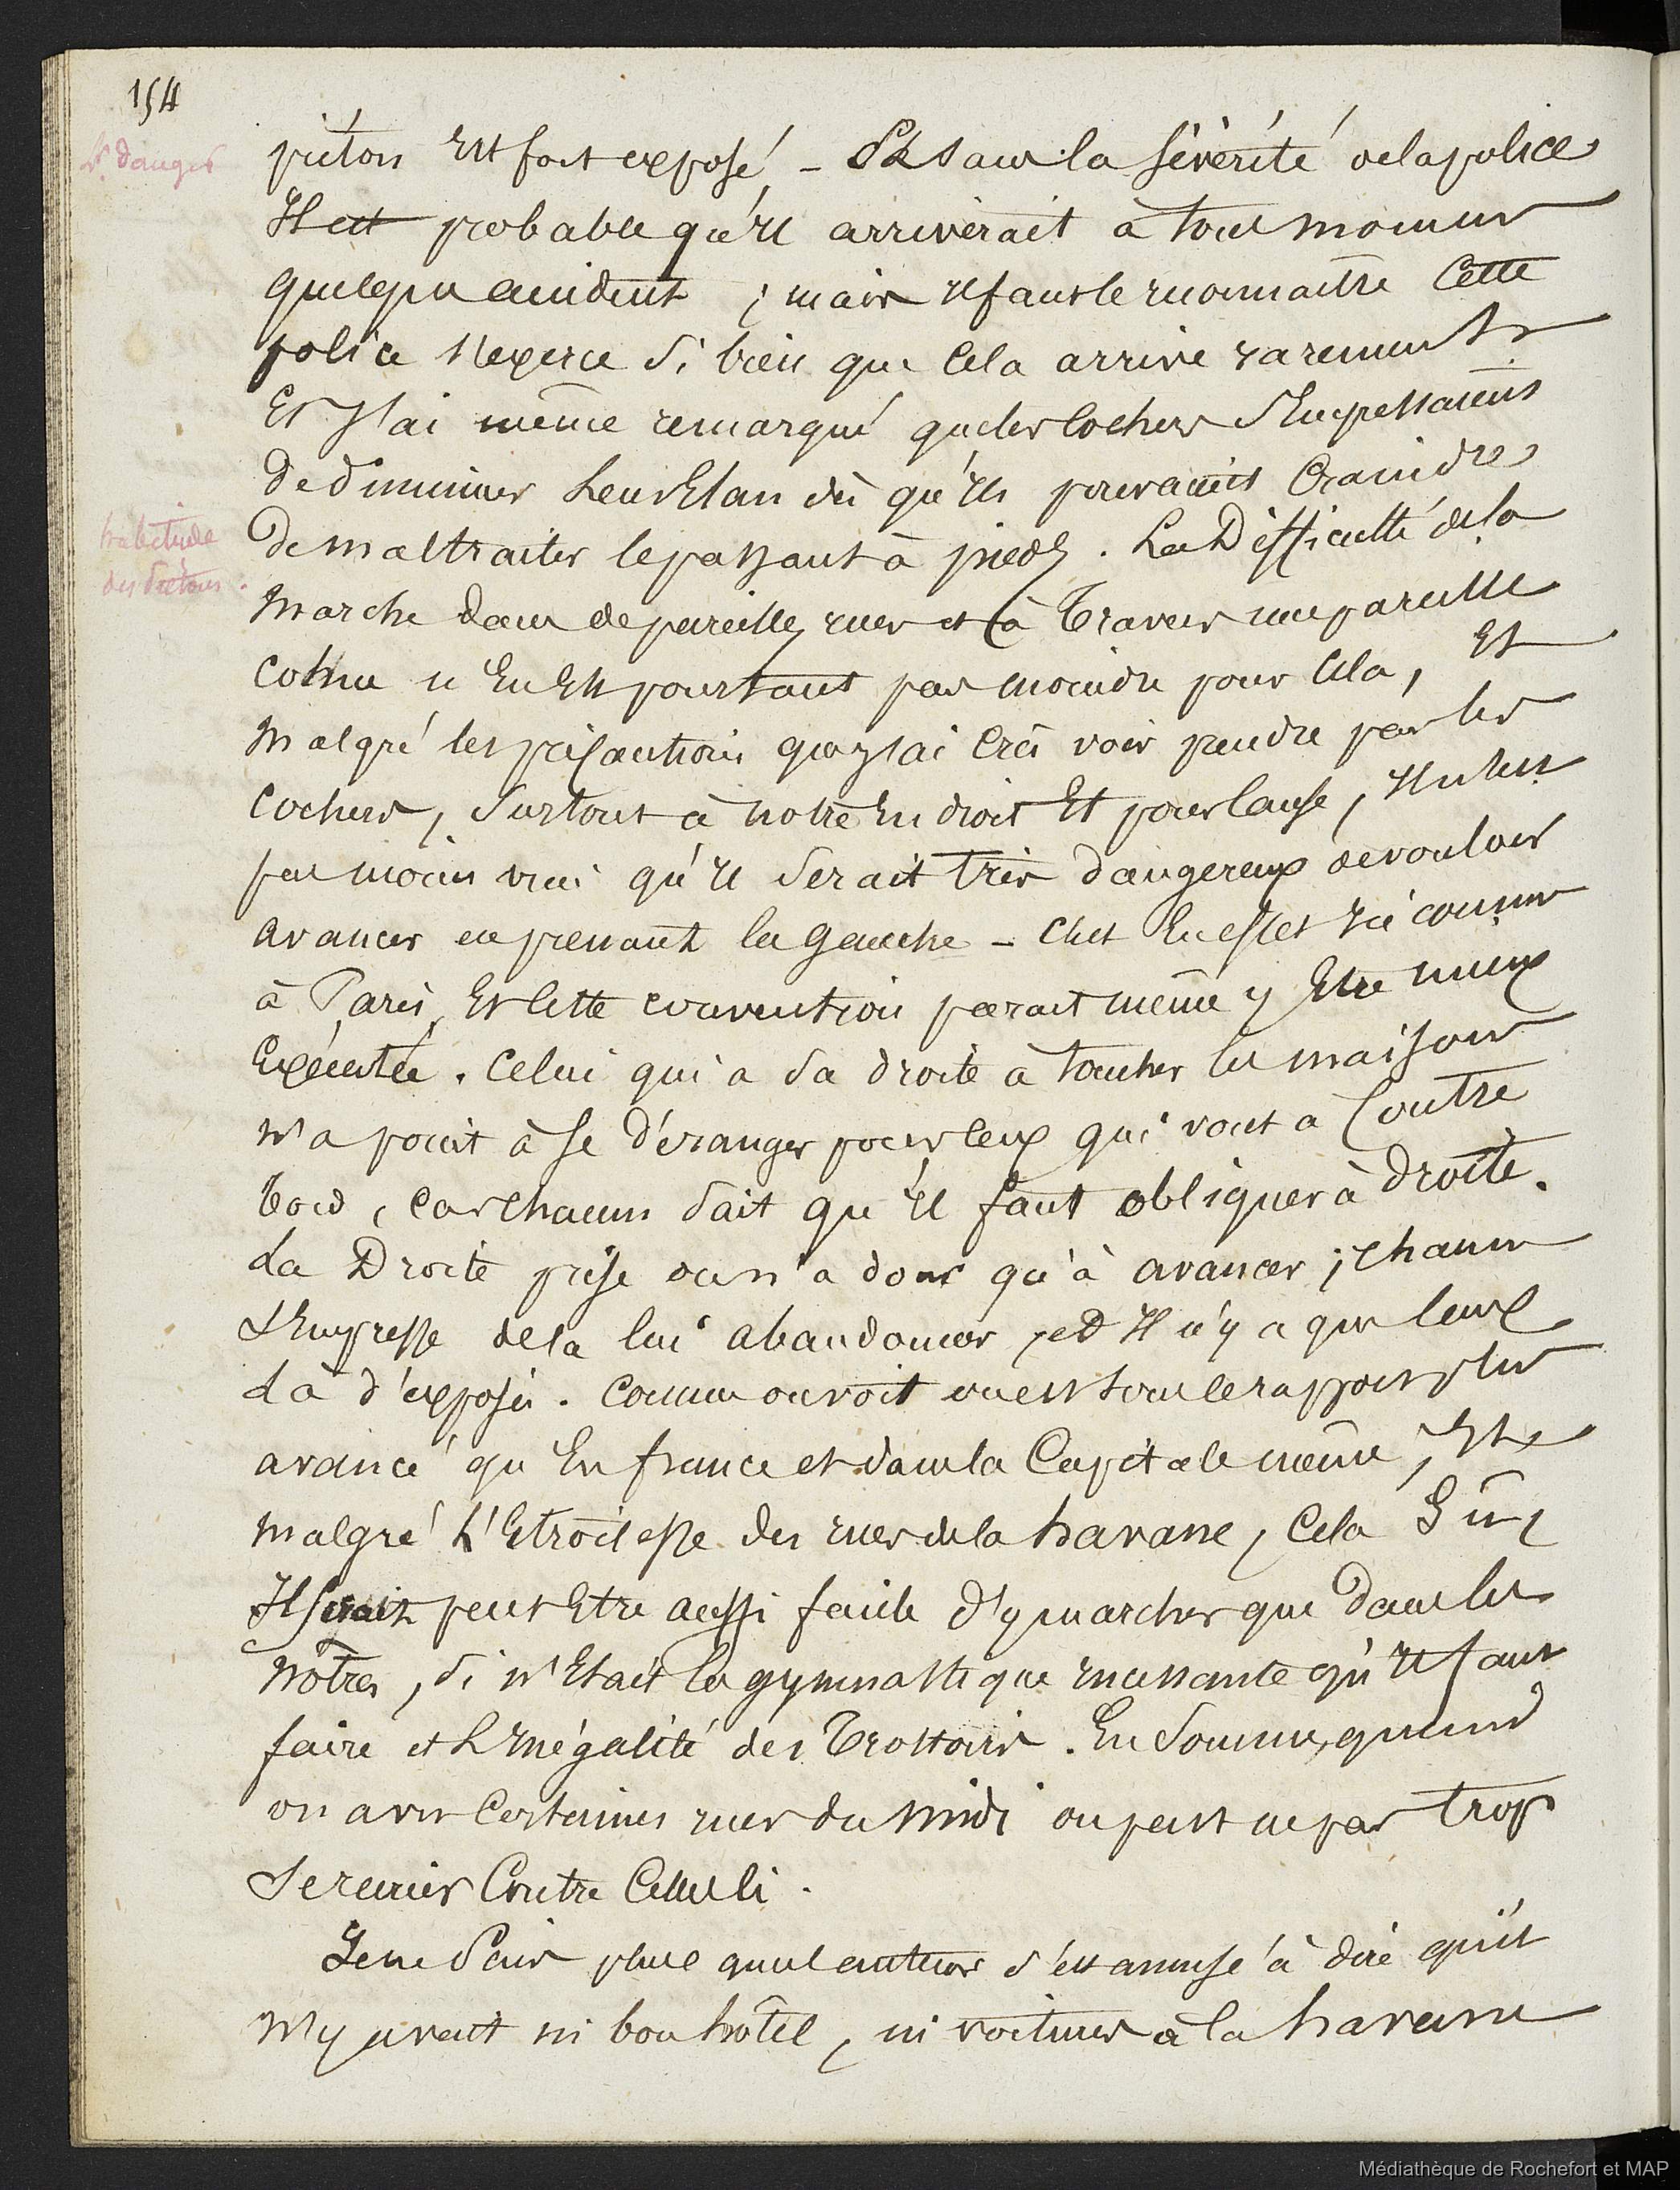 154
Ss. danger
piéton Est fort exposé, - Et sans la sévérité de la police
Il est probable qu'il arriverait à tout moment
quelqu'accident ; mais Il faut le reconnaitre Cette
police s'exerce si bien que Cela arrive rarement
Et J'ai même remarqué que les Cochers s'Empressaient
De diminuer Leur Elan dès qu'ils pouvaient Craindre
habitude
des Piétons.
De maltraiter le passant à pied. La Difficulté de la
Marche dans de pareilles rues et à Travers une pareille
Cohue n'En Est pourtant pas moindre pour Cela, Et
Malgré les précautions que J'ai Crû voir prendre par les
Cochers, Surtout à notre Endroit Et pour Cause, Il n'est
pas moins vrai qu'il Serait très dangereux de vouloir
avancer en prenant la gauche - C'est En effet Ici comme
à Paris, Et Cette convention parait même y Etre mieux
Exécutée. Celui qui a Sa droite à toucher les maisons
N'a point à se déranger pour Ceux qui vont a Contre
bord, Car Chacun Sait qu'Il faut obliquer à Droite.
La Droite prise on n'a donc qu'à avancer ; Chacun
s'Empresse de la lui abandonner, et Il n'y a que Ceux
là d'exposés. Comme on voit on est sous le rapport plus
avancé qu'En france et dans la Capitale même, Et
Malgré L'Etroitesse des rues de la havane, Cela Sûr,
Il serait peut Etre aussi facile d'y marcher que Dans les
Nôtres, Si n'Etait la gymnastique incessante qu'Il faut
faire et L'Inégalité des Trottoirs. En Somme, quand
on a vu Certaines rues du Midi on peut ne pas trop
Se récrier Contre Celles Ci.
Je ne Sais plus quel auteur s'est amusé à dire qu'il
N'y avait ni bon hôtel, ni voitures à la havane
Médiathèque de Rochefort et MAP